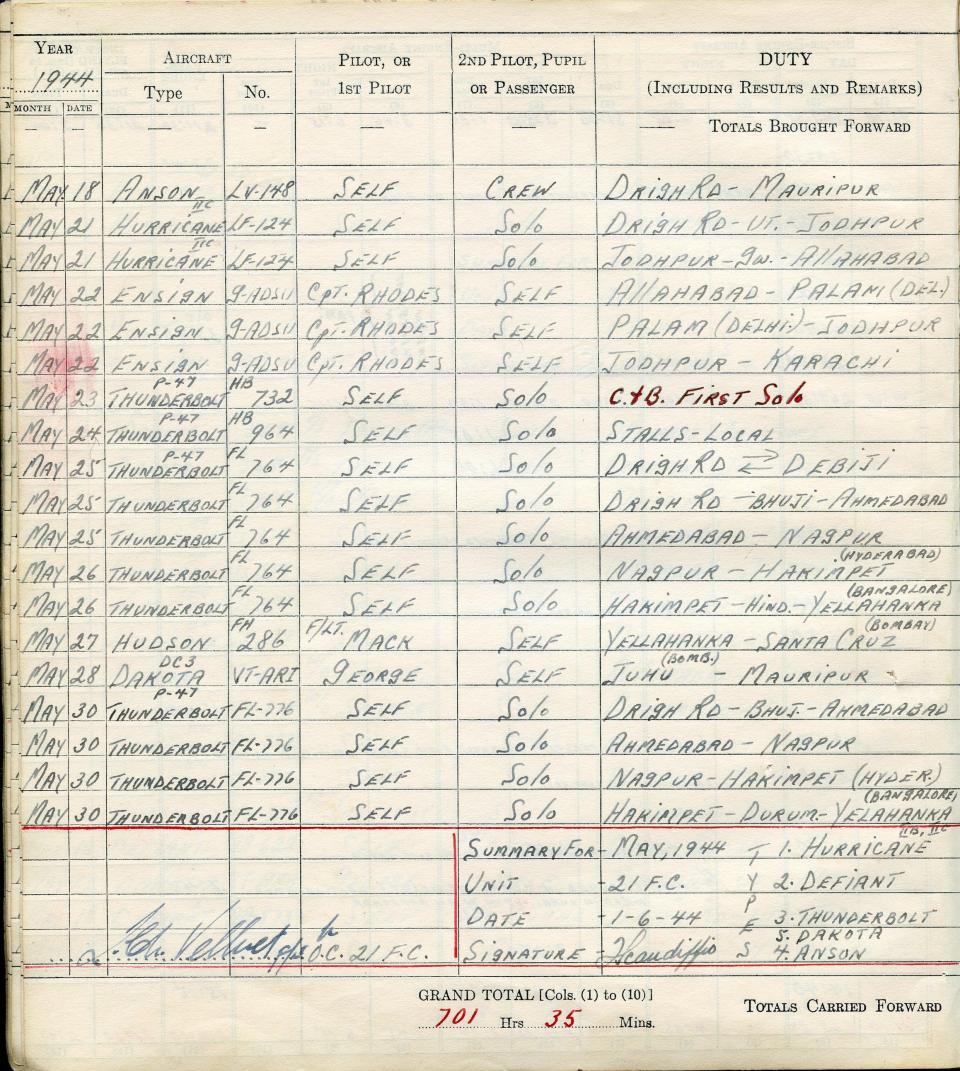 YEAR AIRCRAFT PILOT, OR 2ND PILOT, PUPIL DUTY
1944 Type No. 1ST PILOT OR PASSENGER (INCLUDING RESULTS AND REMARKS)
MONTH DATE
— — — — — — — TOTALS BROUGHT FORWARD
MAY 18 ANSON LV-148 SELF CREW DRIGH RD - MAURIPUR
MAY 21 HURRICANE IIC LF-124 SELF Solo DRIGH RD - UT. - JODHPUR
MAY 21 HURRICANE IIC LF-124 SELF Solo JODHPUR - GW. - AllAHABAD
MAY 22 ENSIGN G-ADSU CPT. RHODES SELF AllAHABAD - PALAM (DEL.)
MAY 22 ENSIGN G-ADSU CPT. RHODES SELF PALAM (DELHI.) - JODHPUR
MAY 22 ENSIGN G-ADSU CPT. RHODES SELF JODHPUR - KARACHI
MAY 23 P-47 THUNDERBOLT HB 732 SELF Solo C.&B. FIRST Solo
MAY 24 P-47 THUNDERBOLT HB 964 SELF Solo STALLS - LOCAL
MAY 25 P-47 THUNDERBOLT FL 764 SELF Solo DRIGH RD ⇄ DEBIJI
MAY 25 THUNDERBOLT FL 764 SELF Solo DRIGH RD - BHUJI - AHMEDABAD
MAY 25 THUNDERBOLT FL 764 SELF Solo AHMEDABAD - NAGPUR
MAY 26 THUNDERBOLT FL 764 SELF Solo NAGPUR - HAKIMPET (HYDERABAD)
MAY 26 THUNDERBOLT FL 764 SELF Solo HAKIMPET - HIND. - YELLAHANKA (BANGALORE)
MAY 27 HUDSON FH 286 F/LT. MACK SELF YELLAHANKA - SANTA CRUZ (BOMBAY)
MAY 28 DC3 DAKOTA VT-ARI GEORGE SELF JUHU (BOMB.) - MAURIPUR
MAY 30 P-47 THUNDERBOLT FL-776 SELF Solo DRIGH RD - BHUJ. - AHMEDABAD
MAY 30 THUNDERBOLT FL-776 SELF Solo AHMEDABAD - NAGPUR
MAY 30 THUNDERBOLT FL-776 SELF Solo NAGPUR - HAKIMPET (HYDER.)
MAY 30 THUNDERBOLT FL-776 SELF Solo HAKIMPET - DURUM - YELAHANKA (BANGALORE)
SUMMARY FOR - MAY, 1944 T 1. HURRICANE IIB, IIC
UNIT - 21 F.C. Y 2. DEFIANT
DATE - 1-6-44 P 3. THUNDERBOLT
E 5. DAKOTA
O.C. 21 F.C. SIGNATURE - S 4. ANSON
GRAND TOTAL [Cols. (1) to (10)]
701 Hrs 35 Mins.
TOTALS CARRIED FORWARD